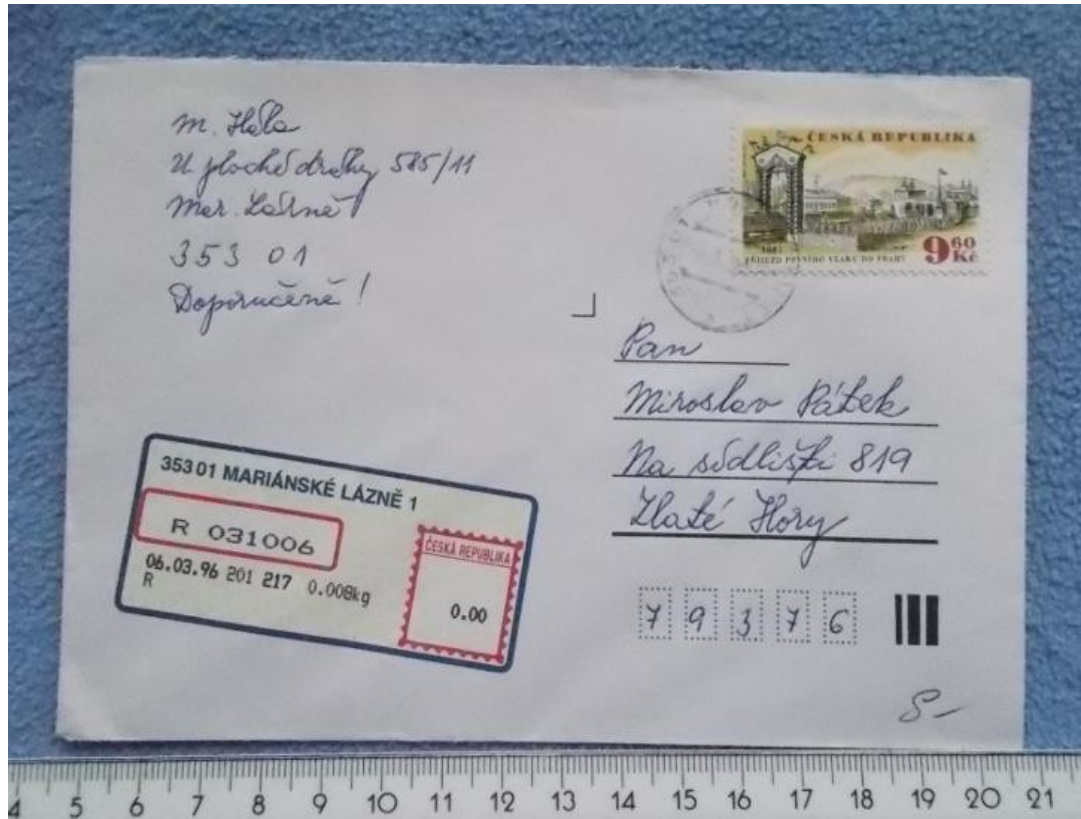 M. Hála
U ploché dráhy 585/11
Mar. Lázně
353 01
Doporučeně!
ČESKÁ REPUBLIKA
PŘÍJEZD PRVNÍHO VLAKU DO PRAHY
9 60 Kč
Pan
Miroslav Pátek
Na sídlišti 819
Zlaté Hory
79376
35301 MARIÁNSKÉ LÁZNĚ 1
R 031006
06.03.96 201 217 0.008kg
R
ČESKÁ REPUBLIKA
0.00
4 5 6 7 8 9 10 11 12 13 14 15 16 17 18 19 20 21